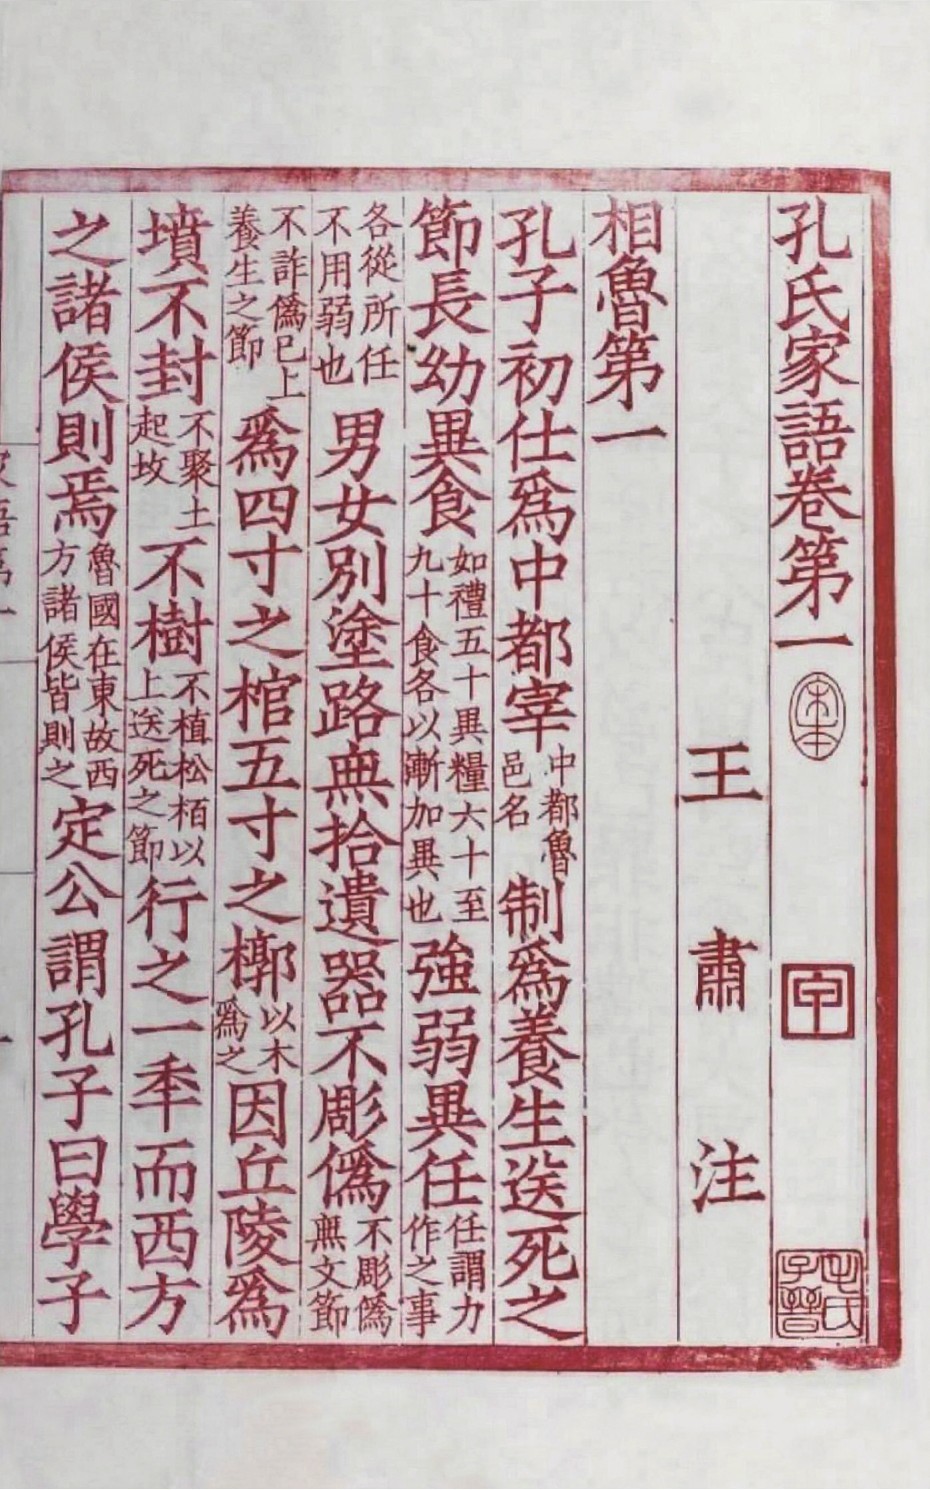 孔氏家語卷第一
王肅注
相魯第一
孔子初仕爲中都宰中都魯邑名制爲養生送死之
節長幼異食如禮五十異糧六十至九十食各以漸加異也強弱異任任謂力作之事
各從所任不用弱也男女別塗路無拾遺器不彫僞不彫僞無文節
不詐僞已上養生之節爲四寸之棺五寸之槨以木爲之因丘陵爲
墳不封不聚土起坟不樹不植松栢以上送死之節行之一秊而西方
之諸侯則焉魯國在東故西方諸侯皆則之定公謂孔子曰學子